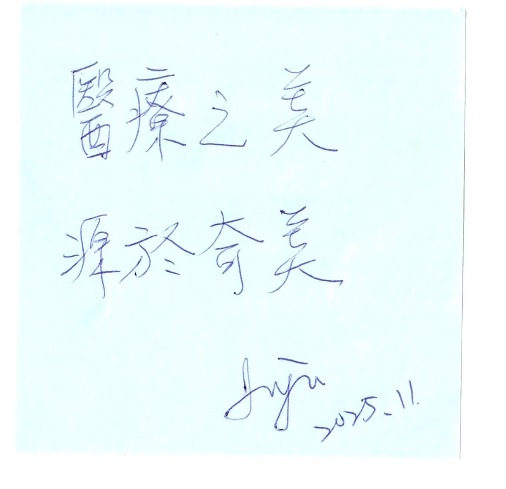 醫療之美
源於奇美
2025.11